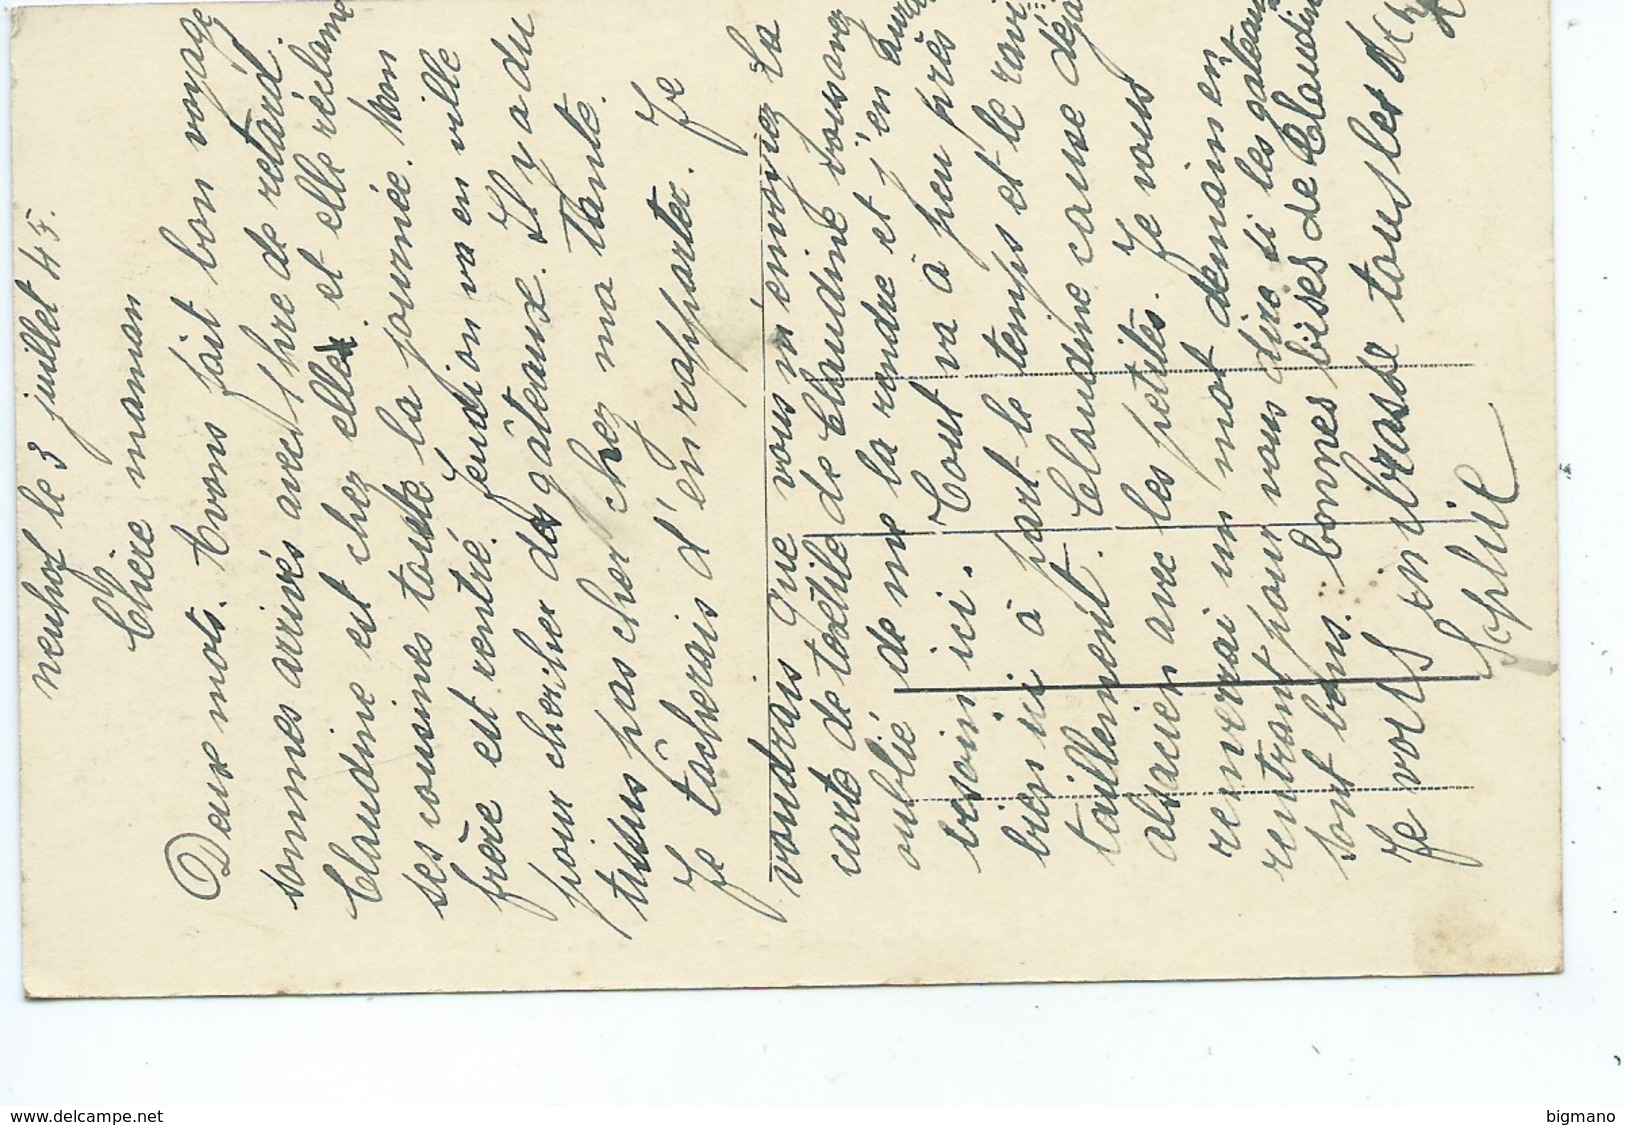 neuhof le 3 juillet 45.
Chère maman
Deux mots. Avons fait bon voyage
sommes arrivés avec 1 hre de retard.
Claudine est chez elle et elle réclame
ses cousines toute la journée. Mon
frère est rentré. Fendion va en ville
pour chercher des gâteaux. Il y a du
tissus pas cher chez ma tante.
Je tâcherais d'en rapporter. Je
voudrais que vous m'envoyiez la
carte de textile de Claudine vous avez
oublié de me la rendre et j'en aurai
besoin ici. Tout va à peu près
bien ici à part le temps et le ravi
taillement. Claudine cause déjà
alsacien avec les petites. Je vous
renverrai un mot demain en
rentrant pour vous dire si les gateaux
sont bons. bonnes bises de Claudine
Je vous embrasse tous les
Sophie
www.delcampe.net
bigmano